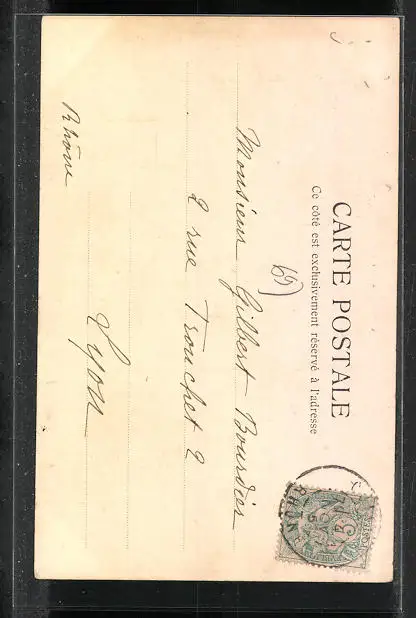 CARTE POSTALE
Ce côté est exclusivement réservé à l'adresse
(69)
Monsieur Gilbert Bourdier
2 rue Tronchet 2
Lyon
Rhône
RHONE